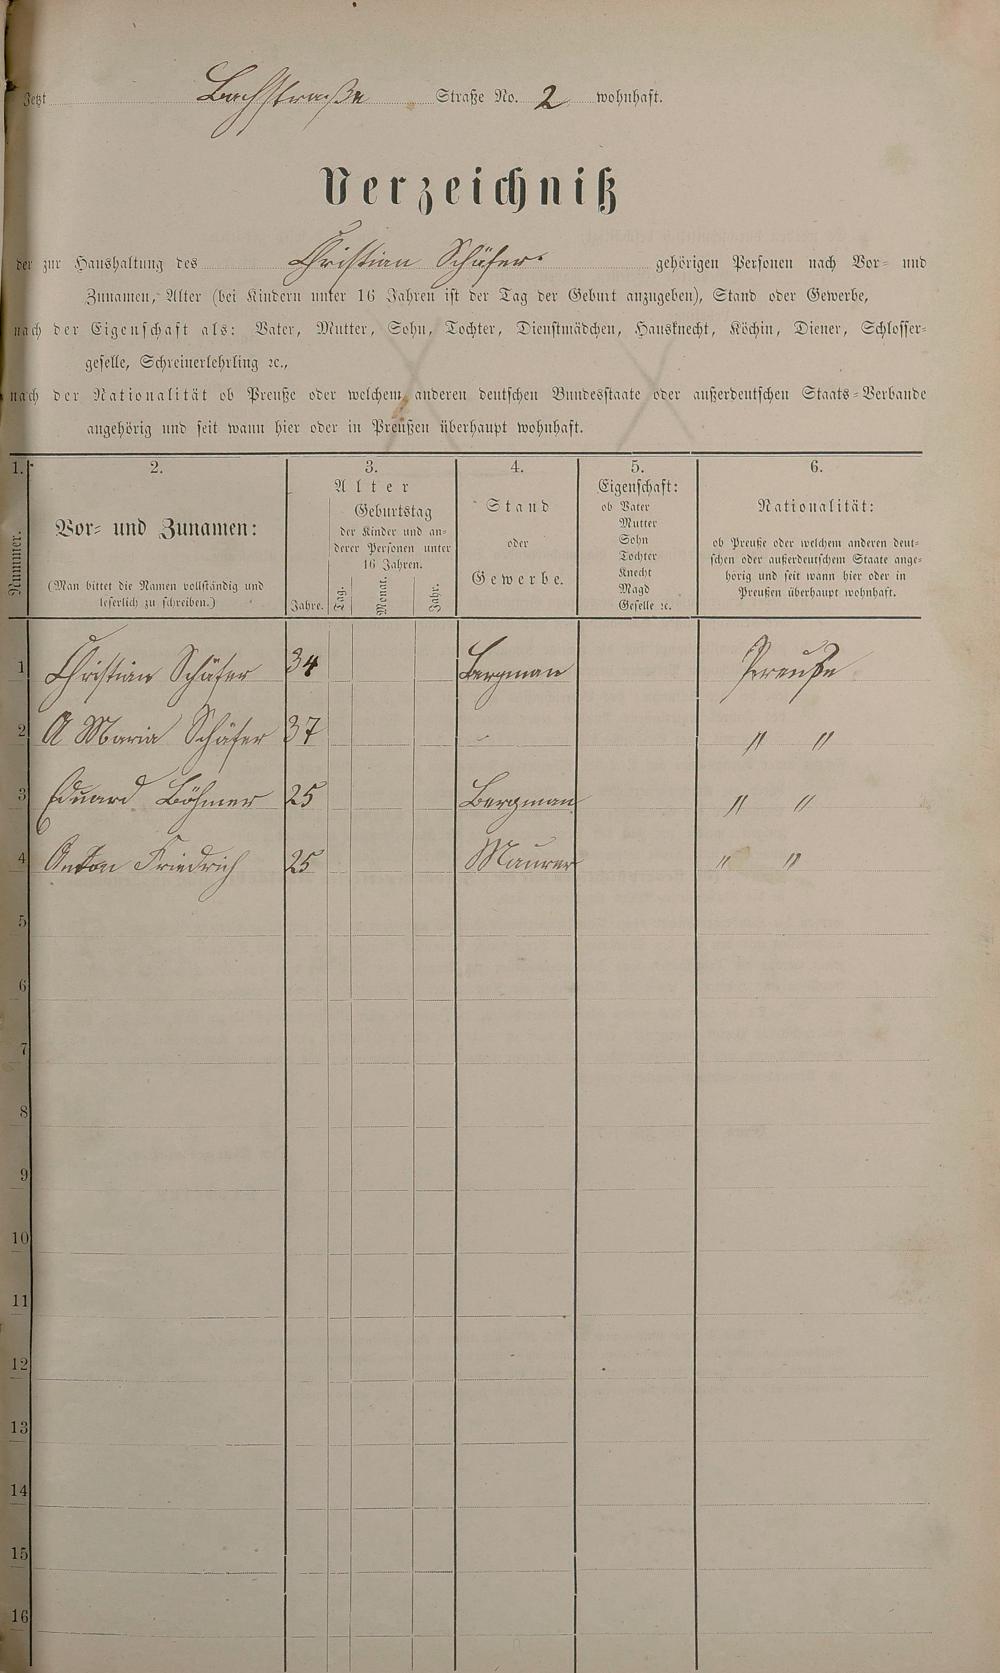 Jetzt Bachstraße Straße No. 2 wohnhaft.
Verzeichniß
der zur Haushaltung des Christian Schäfer gehörigen Personen nach Vor- und
Zunamen, Alter (bei Kindern unter 16 Jahren ist der Tag der Geburt anzugeben), Stand oder Gewerbe,
nach der Eigenschaft als: Vater, Mutter, Sohn, Tochter, Dienstmädchen, Hausknecht, Köchin, Diener, Schlosser-
geselle, Schreinerlehrling ꝛc.,
nach der Nationalität ob Preuße oder welchem anderen deutschen Bundesstaate oder außerdeutschen Staats-Verbande
angehörig und seit wann hier oder in Preußen überhaupt wohnhaft.
1. 2. 3. 4. 5. 6.
Nummer.
Vor- und Zunamen:
(Man bittet die Namen vollständig und
leserlich zu schreiben.)
Alter
Geburtstag
der Kinder und an-
derer Personen unter
16 Jahren.
Jahre. Tag. Monat. Jahr.
Stand
oder
Gewerbe.
Eigenschaft:
ob Vater
Mutter
Sohn
Tochter
Knecht
Magd
Geselle ꝛc.
Nationalität:
ob Preuße oder welchem anderen deut-
schen oder außerdeutschem Staate ange-
hörig und seit wann hier oder in
Preußen überhaupt wohnhaft.
1 Christian Schäfer 34 Bergman Preuße
2 A Maria Schäfer 37 - " "
3 Eduard Böhmer 25 Bergman " "
4 Anton Friedrich 25 Maurer " "
5
6
7
8
9
10
11
12
13
14
15
16